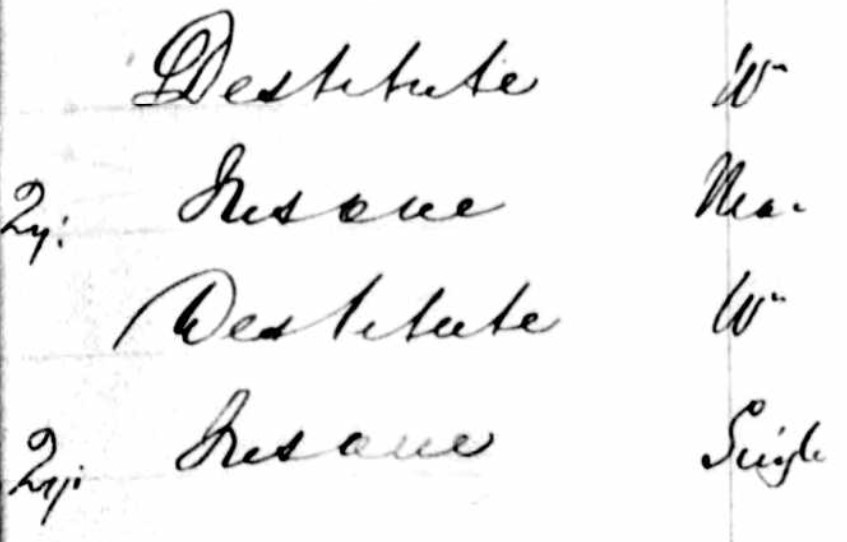 Destitute W
2y: Insane Ma.
Destitute W
2y: Insane Single